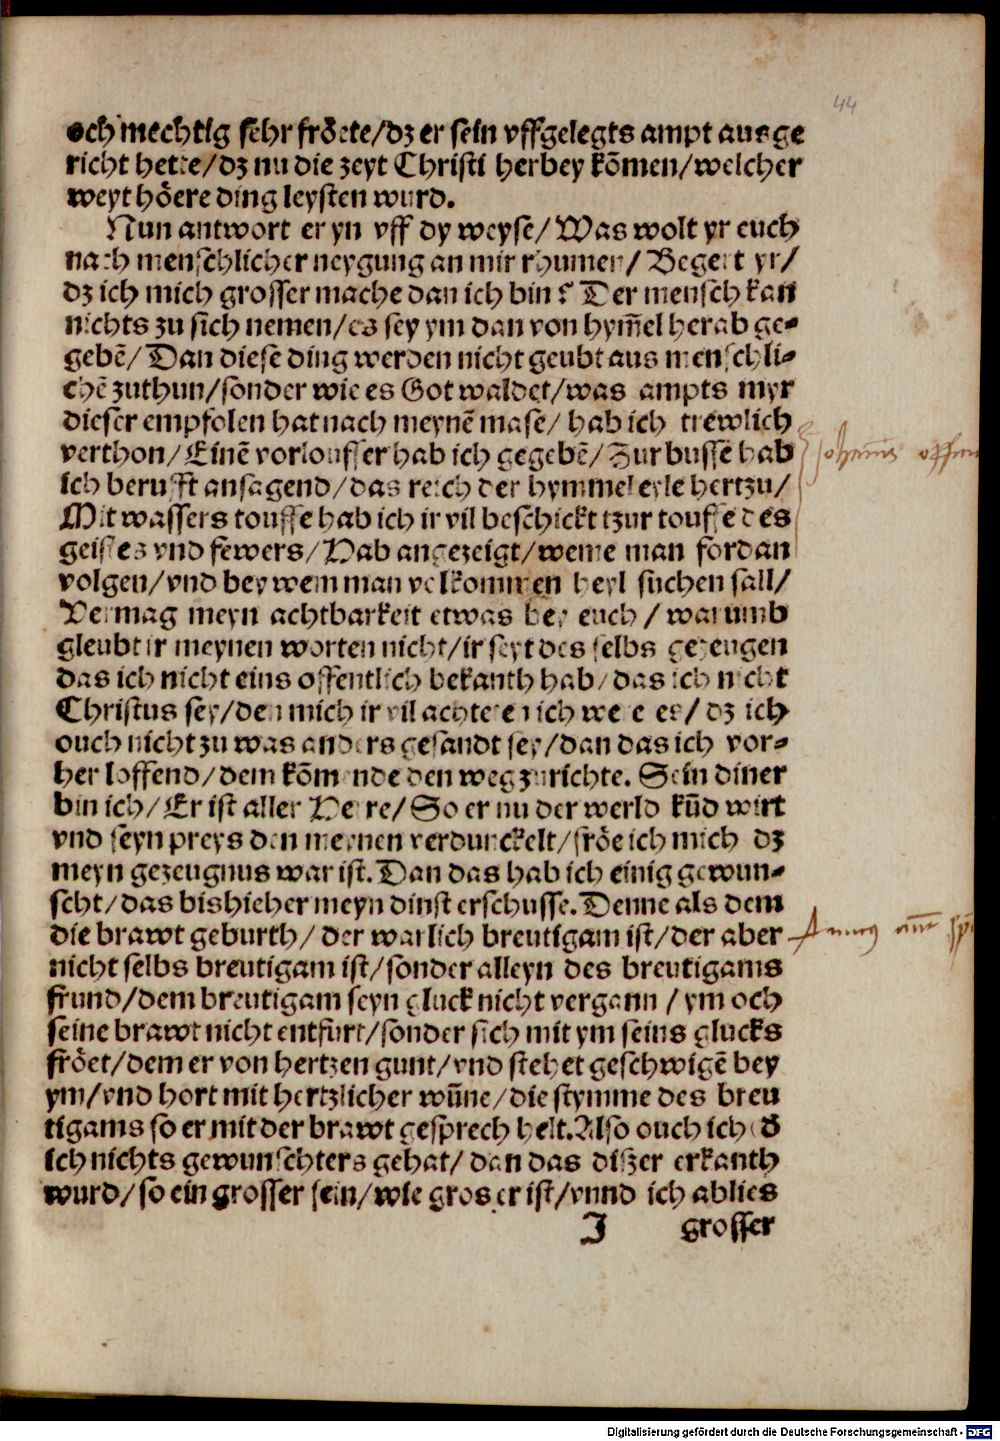 44
och mechtig sehr fröete/dz er sein vffgelegts ampt ausge
richt hette/dz nu die zeyt Christi herbey kōmen/welcher
weyt höere ding leysten wurd.
Nun antwort er yn vff dy weyse/Was wolt yr euch
nach menschlicher neygung an mir rhumen/Begert yr/
dz ich mich grosser mache dan ich bin? Der mensch kan
nichts zu sich nemen/es sey ym dan von hym̄el herab ge-
gebē/Dan diese ding werden nicht geubt aus menschli-
chē zuthun/sonder wie es Got waldet/was ampts myr
dieser empfolen hat nach meynē mase/hab ich trewlich
verthon/Einē vorlouffer hab ich gegebē/Zur busse hab
ich berufft ansagend/das reich der hymmel eyle hertzu/
Mit wassers touffe hab ich ir vil beschickt tzur touffe des
geistes vnd fewers/Hab angezeigt/weme man fordan
volgen/vnd bey wem man volkommen heyl suchen sall/
Vermag meyn achtbarkeit etwas bey euch/warumb
gleubt ir meynen worten nicht/ir seyt des selbs gezeugen
das ich nicht eins offentlich bekanth hab/das ich nicht
Christus sey/den mich ir vil achteten ich were es/dz ich
ouch nicht zu was anders gesandt sey/dan das ich vor-
her loffend/dem kōmende den weg zurichte. Sein diner
bin ich/Er ist aller Herre/So er nu der werld kūd wirt
vnd seyn preys den meynen verdunckelt/fröe ich mich dz
meyn gezeugnus war ist. Dan das hab ich einig gewun-
scht/das bishieher meyn dinst erschusse. Denne als dem
die brawt geburth/der warlich breutigam ist/der aber
nicht selbs breutigam ist/sonder alleyn des breutigams
frund/dem breutigam seyn gluck nicht vergann/ym och
seine brawt nicht entfurt/sonder sich mit ym seins glucks
fröet/dem er von hertzen gunt/vnd stehet geschwigē bey
ym/vnd hort mit hertzlicher wūne/die stymme des breu
tigams so er mit der brawt gesprech helt. Also ouch ich d
ich nichts gewunschters gehat/dan das diszer erkanth
wurd/so ein grosser sein/wie gros er ist/vnnd ich ablies
I grosser
Digitalisierung gefördert durch die Deutsche Forschungsgemeinschaft - DFG